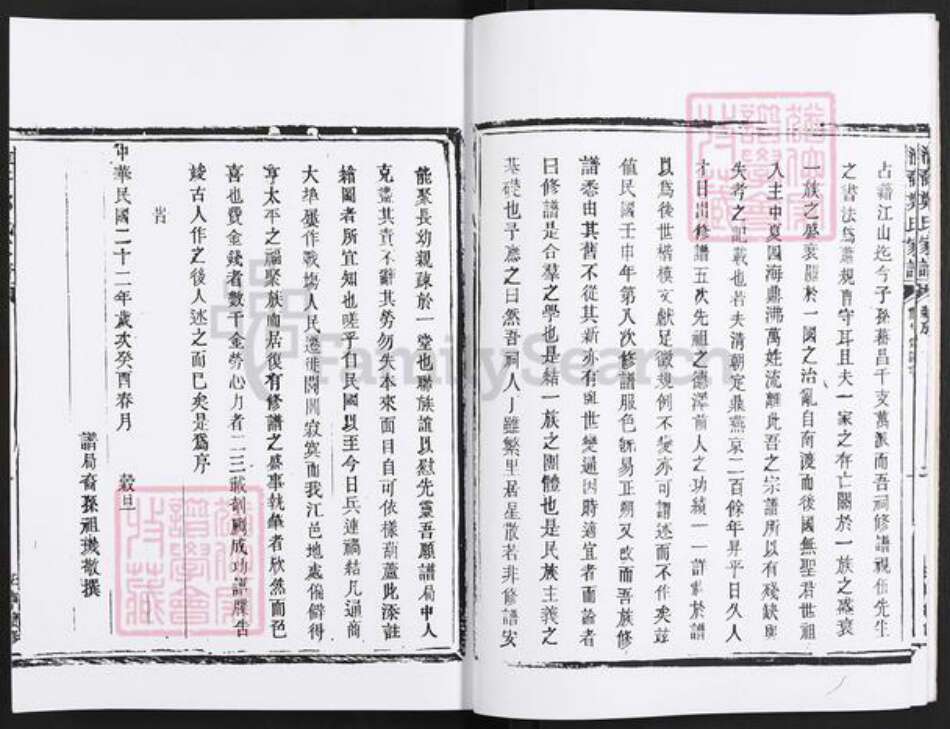 占籍江山迄今子孫蕃昌千支萬派而吾祠修譜視伍先生
之書法爲肅規曹守耳且夫一家之存亡關於一族之盛衰
一族之盛衰關於一國之治亂自南渡而後國無聖君世祖
入主中夏因海鼎沸萬姓流離此吾之宗譜所以有殘缺與
失考之記載也若夫清朝定鼎燕京二百餘年昇平日久人
才日出修譜五次先祖之德澤前人之功績一一詳載於譜
以爲後世楷模文獻足徵規例不變亦可謂述而不作矣茲
值民國壬申年第八次修譜服色旣易正朔又改而吾族修
譜悉由其舊不從其新亦有與世變通因時適宜者而論者
曰修譜是合羣之學也是結一族之團體也是民族主義之
基礎也予應之曰然吾祠人丁雖繁里居星散若非修譜安
能聚長幼親疎於一堂也聯族誼以慰先靈吾願譜局中人
克盡其責不辭其勞勿失本來面目自可依樣葫蘆此添註
繪圖者所宜知也嗟乎自民國以至今日兵連禍結凡通商
大埠屢作戰塲人民遷徙閭閻寂寞而我江邑地處偏僻得
享太平之福聚族而居復有修譜之盛事執筆者欣然而色
喜也費金錢者數千金勞心力者二三載剞劂成功譜牒告
竣古人作之後人述之而已矣是爲序
旹
中華民國二十二年歲次癸酉春月 穀旦
譜局裔孫祖璣敬撰
譜學會
收藏
譜學會
收藏
FamilySearch